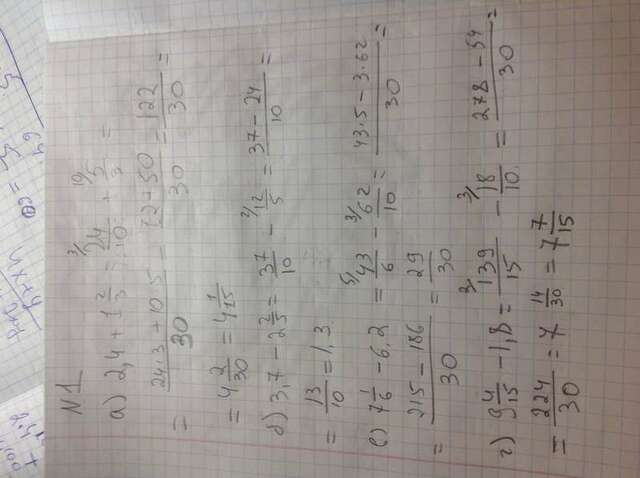 N1
а) 2,4 + 1 2/3 = ³⁄24/10 + ¹⁰⁄5/3 =
= 24·3 + 10·5/30 = 72+50/30 = 122/30 =
= 4 2/30 = 4 1/15
б) 3,7 − 2 2/5 = 37/10 − ²⁄12/5 = 37 − 24/10 =
= 13/10 = 1,3
в) 7 1/6 − 6,2 = ⁵⁄43/6 − ³⁄62/10 = 43·5 − 3·62/30 =
= 215 − 186/30 = 29/30
г) 9 4/15 − 1,8 = ²⁄139/15 − ³⁄18/10 = 278 − 54/30 =
= 224/30 = 7 14/30 = 7 7/15